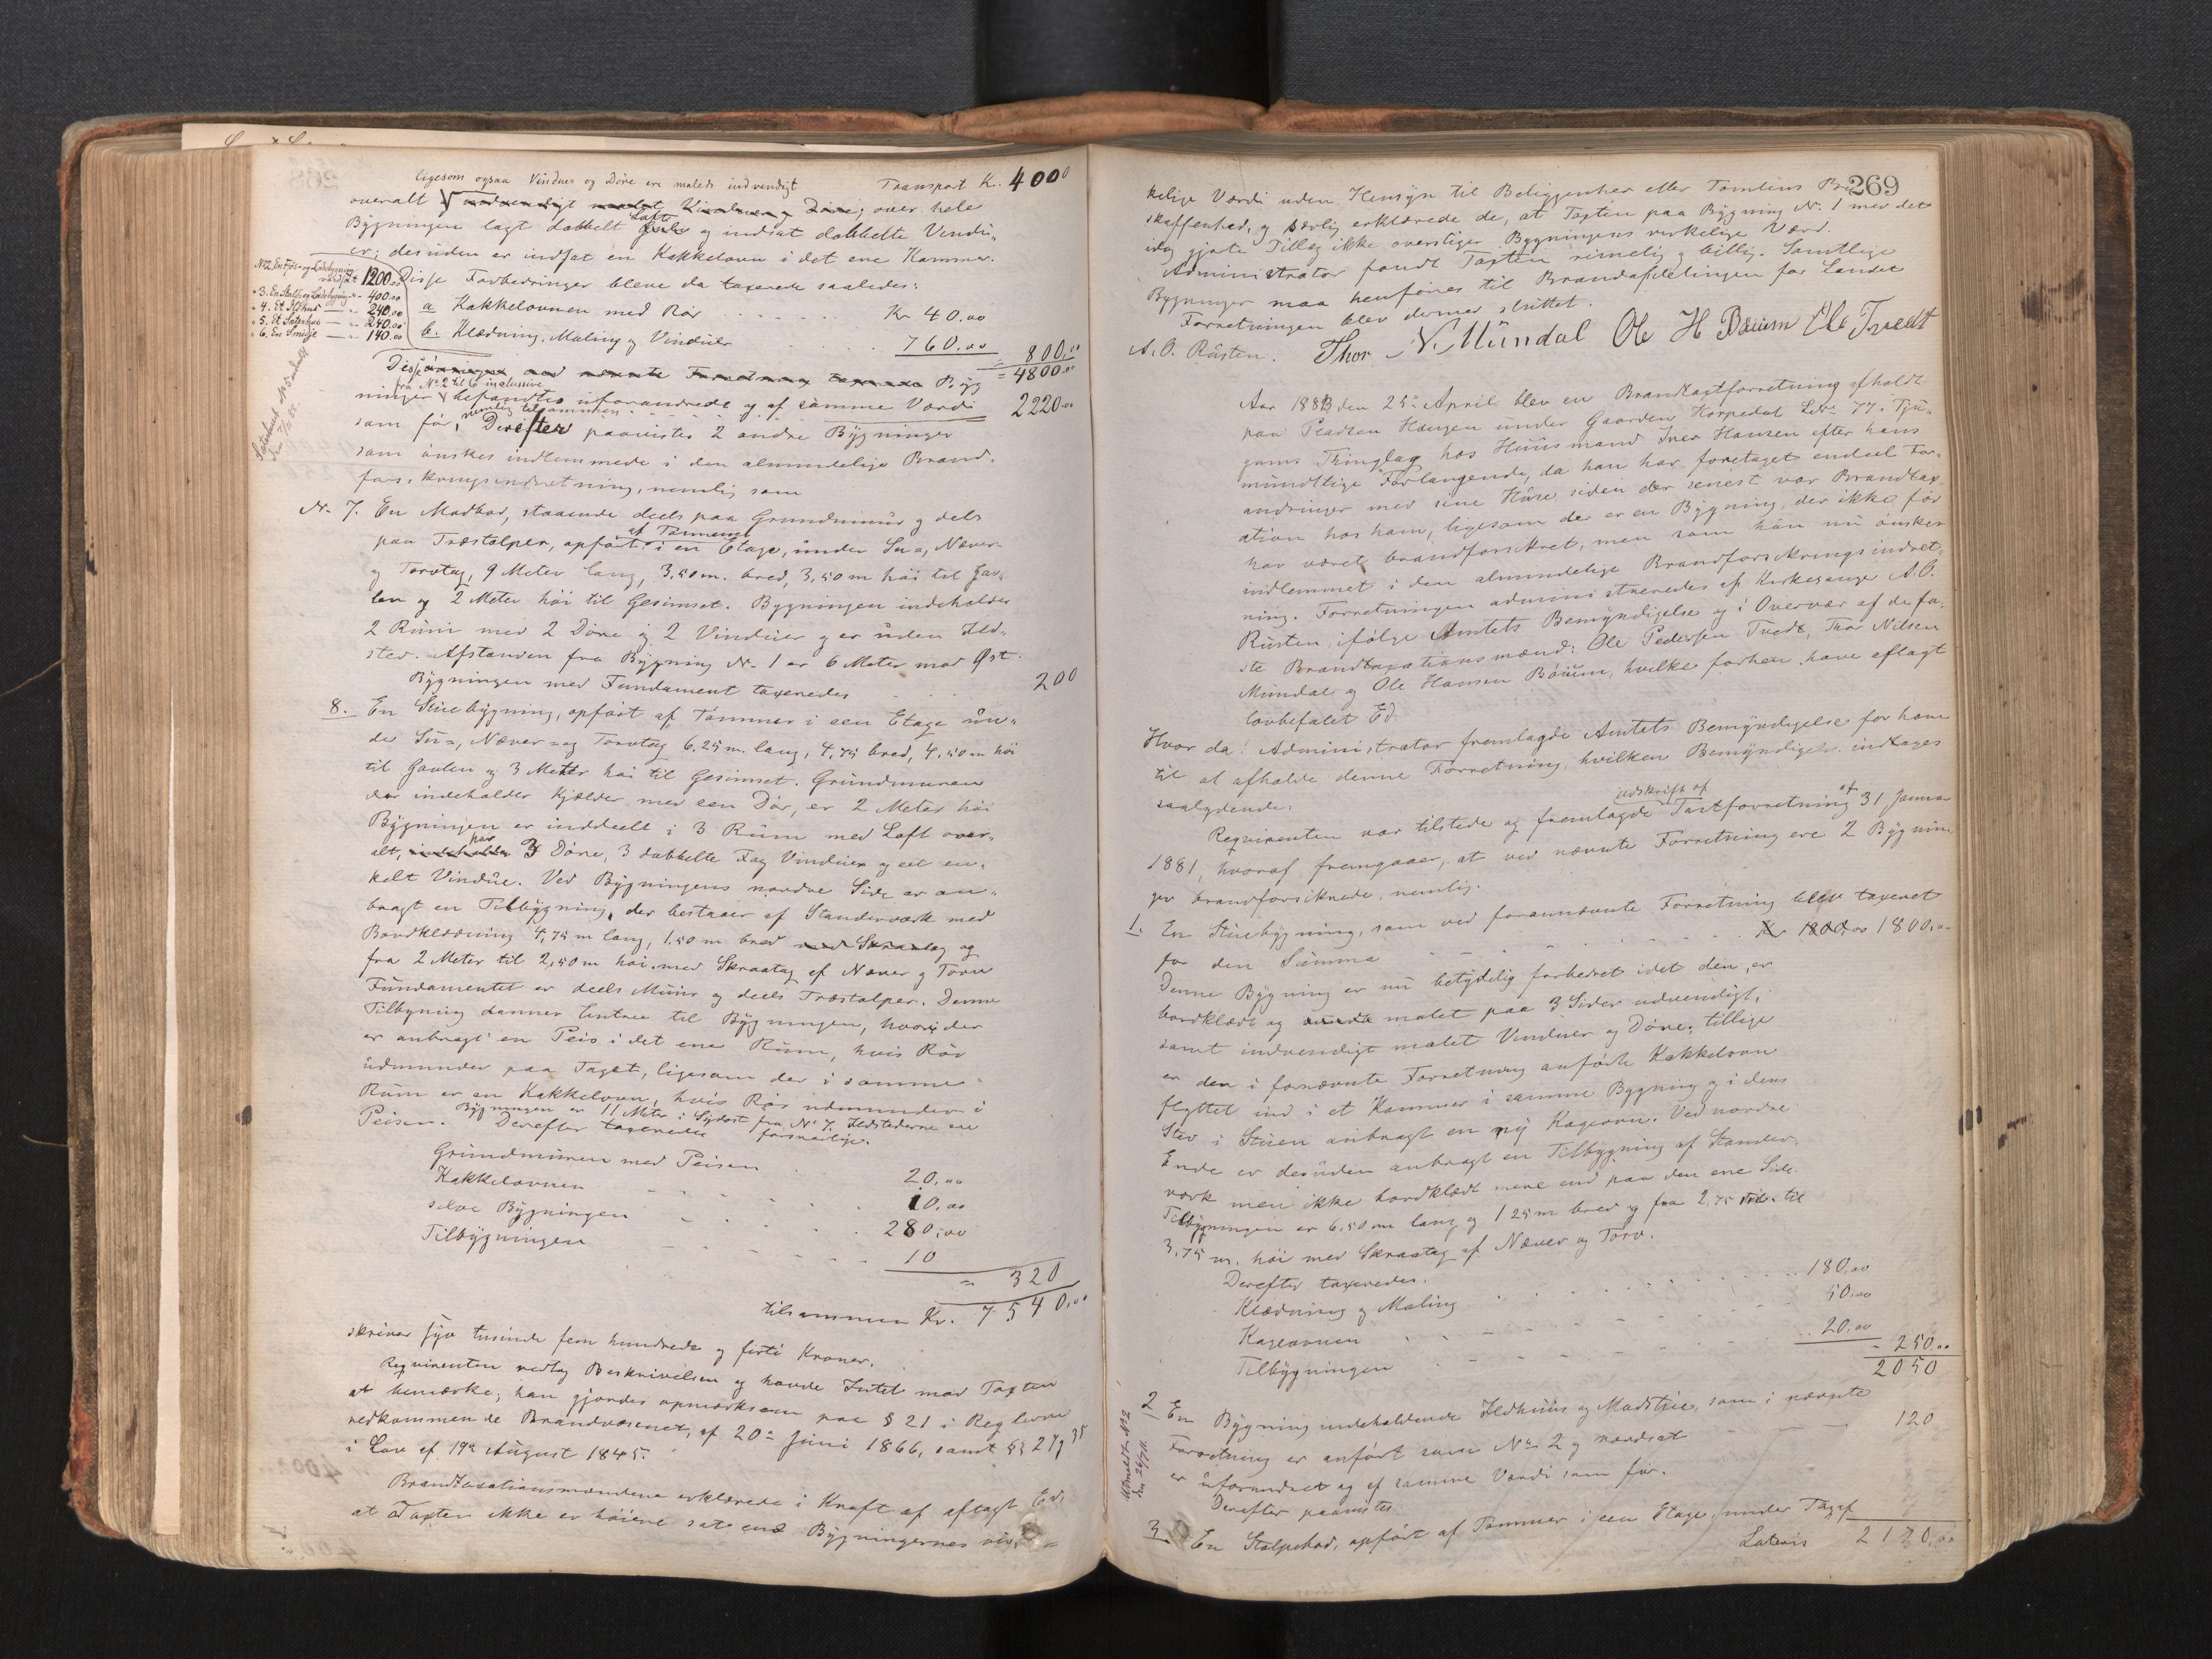 ligesom ogsaa Vinduer og Døre ere malede indvendigt
Transport K. 4000
overalt indvendigt malet Vinduer og Døre; over hele
Bygningen lagt dobbelt Lofte og indsat dobbelte Vindu-
er; desuden er indsat en Kakkelovn i det ene Kammer.
No 2. En Fjøs- og Ladebygning værdsat 1200.00
" 3. En Stald- og Ladebygning - 400.00
" 4. Et Ildhus - " 240.00
" 5. Et Sæterhus - " 240.00
" 6. En Smidje - " 140.00
Disse Forbedringer bleve da taxerede saaledes:
a. Kakkelovnen med Rør Kr 40.00
b. Klædning, Maling og Vinduer 760.00
= 800.00
= 4800.00
Disse Byg-
fra No 2 til 6 inclusive
ninger befandtes uforandrede og af samme Værdi 2220.00
nemlig tilsammen
som før, Derefter paavistes 2 andre Bygninger
som ønskes indlemmede i den almindelige Brand-
forsikringsindretning, nemlig som
N. 7. En Madbod, staaende deels paa Grundmuur og dels
af Tømmer
paa Træstolper, opført i en Etage, under Su-, Næver-
og Torvtag, 9 Meter lang, 3,50 m. bred, 3,50 m høi til Gav-
len og 2 Meter høi til Gesimset. Bygningen indeholder
2 Rum med 2 Døre og 2 Vinduer og er uden Ild-
sted. Afstanden fra Bygning N. 1 er 6 Meter mod Øst.
Bygningen med Fundament taxeredes 200
8. En Stuebygning, opført af Tømmer i een Etage un-
der Su-, Næver- og Torvtag 6.25 m. lang, 4,75 bred, 4,50 m høi
til Gavlen og 3 Meter høi til Gesimset. Grundmuren
der indeholder Kjælder med een Dør, er 2 Meter høi
Bygningen er inddeelt i 3 Rum med Loft over-
alt, har 3 Døre, 3 dobbelte Fag Vinduer og eet en-
kelt Vindue. Ved Bygningens nordre Side er an-
bragt en Tilbygning, der bestaaer af Standerværk med
Bordklædning 4,75 m lang, 1.50 m bred med Skraatag og
fra 2 Meter til 2,50 m høi. med Skraatag af Næver og Torv
Fundamentet er deels Muur og deels Træstolper. Denne
Tilbygning danner Entree til Bygningen, hvori der
er anbragt en Peis i det ene Rum, hvis Rør
udmunder paa Taget, ligesom der i samme
Rum er en Kakkelovn, hvis Rør udmunder i
Bygningen er 11 Meter i Sydost fra No 7. Ildstederne ere
Peisen. Derefter taxeredes forsvarlige.
Grundmuren med Peisen 20.00
Kakkelovnen 10.00
selve Bygningen 280.00
Tilbygningen 10
= 320
tilsammen Kr. 7540.00
skriver syv tusinde fem hundrede og firti Kroner.
Requirenten vedtog Beskrivelsen og havde Intet mod Taxten
at bemærke; han gjordes opmærksom paa § 21 i Reglerne
vedkommende Brandvæsenet, af 20de Juni 1866, samt §§ 27 og 35
i Lov af 19de August 1845.
Brandtaxationsmændene erklærede i Kraft af aflagt Ed,
at Taxten ikke er høiere sat end Bygningernes vir-
269
kelige Værdi uden Hensyn til Beliggenhed eller Tomtens
skaffenhed, og særlig erklærede de, at Taxten paa Bygning N. 1 med det
idag gjorte Tillæg ikke overstiger Bygningens virkelige Værd.
Administrator fandt Taxten rimelig og billig. Samtlige
Bygninger maa henføres til Brandafdelingen for Landet
Forretningen blev dermed sluttet.
A. O. Rusten. Thor N. Mundal Ole H Bøium Ole Tvedt
Aar 1883 den 25de April blev en Brandtaxtforretning afholdt
paa Pladsen Haugen under Gaarden Horpedal Lbr. 77 i Tju-
gums Thinglag hos Huusmand Iver Hansen efter hans
mundtlige Forlangende, da han har foretaget endeel For-
andringer med sine Huse, siden der senest var Brandtax-
ation hos ham, ligesom der er en Bygning, der ikke før
har været brandforsikret, men som han nu ønsker
indlemmet i den almindelige Brandforsikringsindret-
ning. Forretningen administreredes af Kirkesanger A. O.
Rusten ifølge Amtets Bemyndigelse og i Overvær af de fa-
ste Brandtaxationsmænd: Ole Pedersen Tvedt, Thor Nilsen
Mundal og Ole Hansen Bøium, hvilke forhen have aflagt
lovbefalet Ed.
Hvor da: Administrator fremlagde Amtets Bemyndigelse for ham
til at afholde denne Forretning, hvilken Bemyndigelse indtages
saalydende:
udskrift af
Requirenten var tilstede og fremlagde Taxtforretning af 31 Januar
1881, hvoraf fremgaaer, at ved nævnte Forretning ere 2 Bygnin-
ger brandforsikrede, nemlig.
1. En Stuebygning, som ved forannævnte Forretning blev taxeret
for den Summa Kr 1800.00 1800.00
Denne Bygning er nu betydelig forbedret idet den er
bordklædt og malet paa 3 Sider udvendigt,
samt indvendigt malet Vinduer og Døre; tillige
er den i fornævnte Forretning anførte Kakkelovn
flyttet ind i et Kammer i samme Bygning og i dens
Sted i Stuen anbragt en ny Kageovn. Ved nordre
Ende er desuden anbragt en Tilbygning af Stander-
værk men ikke bordklædt mere end paa den ene Side.
Tilbygningen er 6.50 m lang og 1 25 m bred og fra 2,75 til
3.75 m. høi med Skraatag af Næver og Torv.
Derefter taxeredes.
Klædning og Maling 180.00
Kageovnen 50.00
Tilbygningen 20.00
= 250.00
2050
Utmeldt No 2
den 26/7 11.
2 En Bygning indeholdende Ildhuus og Madstue, som i nævnte
Forretning er anført som No 2 og værdsat 120
er uforandret og af samme Værdi som før.
Derefter paavistes
3 En Stolpebod, opført af Tømmer i een Etage under Tag af
Lateris 2170.00